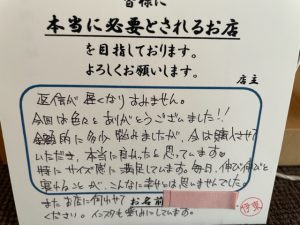 皆様に
本当に必要とされるお店
を目指しております。
よろしくお願いします。
店主
返信が遅くなりすみません。
今回は色々とありがとうございました!!
金額的に多少悩みましたが、今は購入させて
いただき、本当に良かったと思っています。
特にサイズ感に満足しています。毎日、伸び伸びと
寝れることが、こんなに幸せとは思いませんでした。
またお店に伺わせて
お名前
ください。インスタも楽しみにしています。